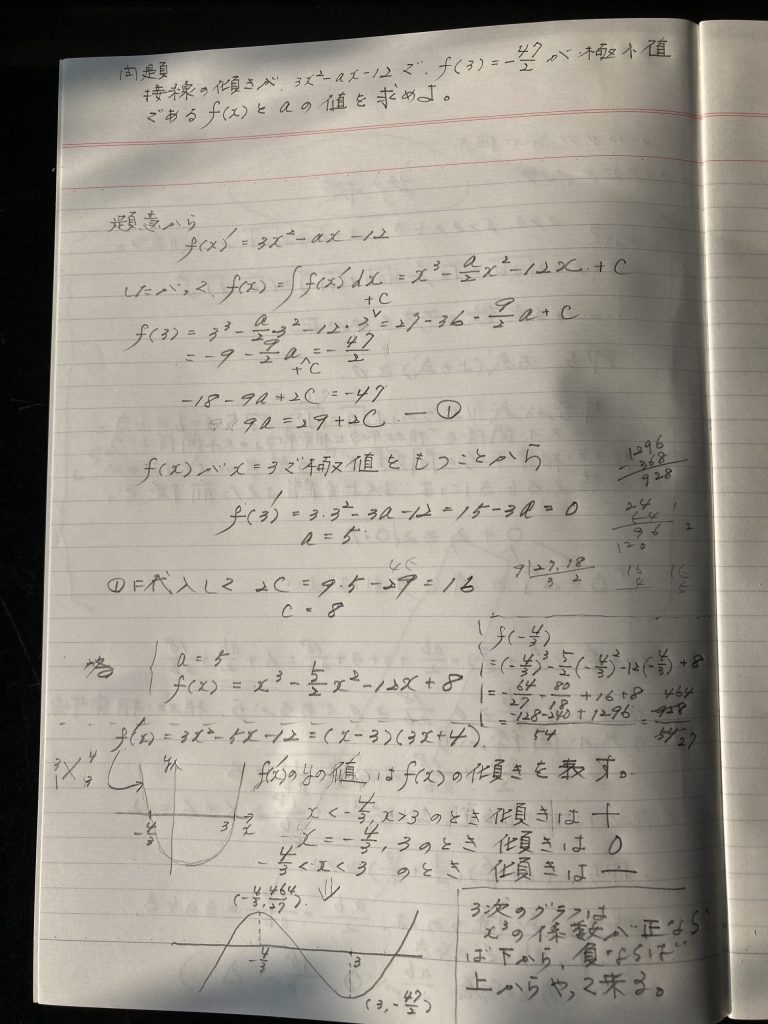 問題
接線の傾きが 3x²-ax-12で、f(3)=-47/2が極小値
であるf(x)とaの値を求めよ。
題意から
f(x)'=3x²-ax-12
したがって f(x)=∫f(x)'dx=x³-a/2x²-12x+C
f(3)=3³-a/2・3²-12・3+C=27-36-9/2a+C
=-9-9/2a+C=-47/2
-18-9a+2C=-47
9a=29+2C ―①
f(x)がx=3で極値をもつことから
f(3)'=3・3²-3a-12=15-3a=0
a=5
①に代入して 2C=9・5-29=16
C=8
a=5
f(x)=x³-5/2x²-12x+8
f(-4/3)
=(-4/3)³-5/2(-4/3)²-12(-4/3)+8
=-64/27-80/18+16+8
=-128-240+1296/54=928/54 464/27
f(x)'=3x²-5x-12=(x-3)(3x+4)
3 4
1 3
y
-4/3 3 x
f(x)'のyの値はf(x)の傾きを表す。
x<-4/3, x>3のとき 傾きは +
x=-4/3, 3のとき 傾きは 0
-4/3<x<3 のとき 傾きは ー
⇓
(-4/3, 464/27)
-4/3 3
(3, -47/2)
3次のグラフは
x³の係数が正なら
ば下から、負ならば
上からやって来る。
1296
-368
928
24
96
120
9 27,18
3 2
16
4